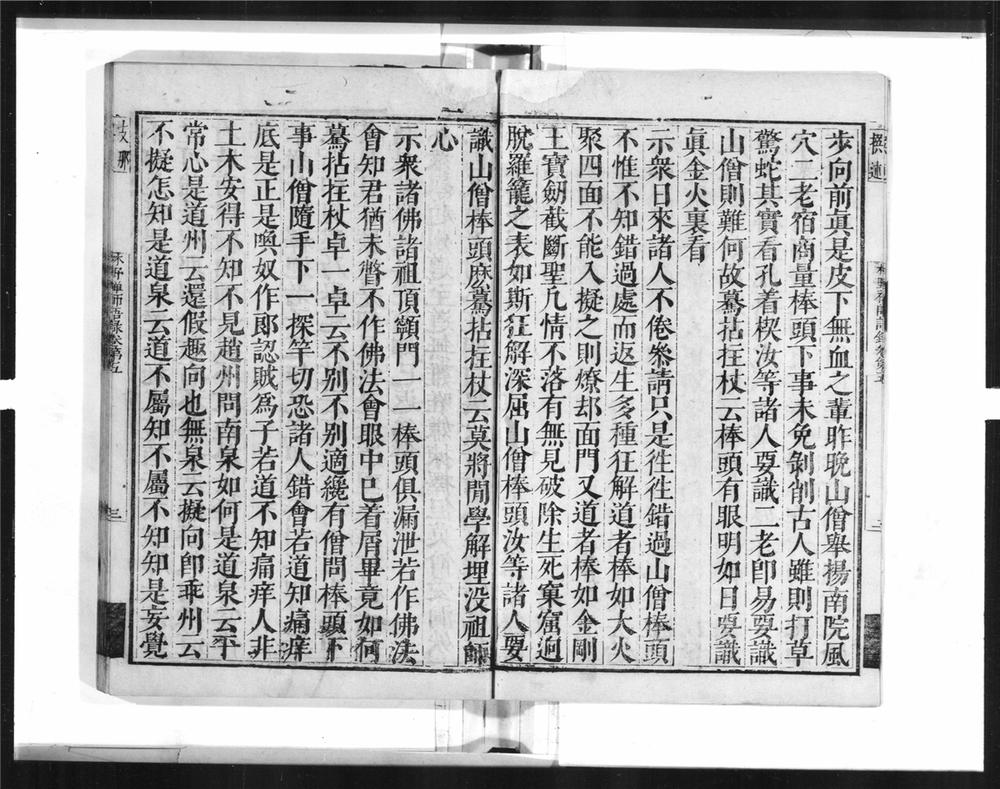 步向前真是皮下無血之輩昨晚山僧舉揚南院風
穴二老宿商量棒頭下事未免剝削古人雖則打草
驚蛇其實看孔着楔汝等諸人要識二老卽易要識
山僧則難何故驀拈拄杖云棒頭有眼明如日要識
眞金火裏看
示衆日來諸人不倦叅請只是徃徃錯過山僧棒頭
不惟不知錯過處而返生多種狂解道者棒如大火
聚四面不能入擬之則燎却面門又道者棒如金剛
王寶劒截斷聖凡情不落有無見破除生死窠窟逈
脫羅籠之表如斯狂解深屈山僧棒頭汝等諸人要
識山僧棒頭麽驀拈拄杖云莫將閒學解埋没祖師
心
示衆諸佛諸祖頂𩕳門一一棒頭俱漏泄若作佛法
會知君猶未瞥不作佛法會眼中已着屑畢竟如何
驀拈拄杖卓一卓云不别不别適纔有僧問棒頭下
事山僧隨手下一探竿切恐諸人錯會若道知痛痒
底是正是喚奴作郎認賊爲子若道不知痛痒人非
土木安得不知不見趙州問南泉如何是道泉云平
常心是道州云還假趣向也無泉云擬向卽乖州云
不擬怎知是道泉云道不屬知不屬不知知是妄覺